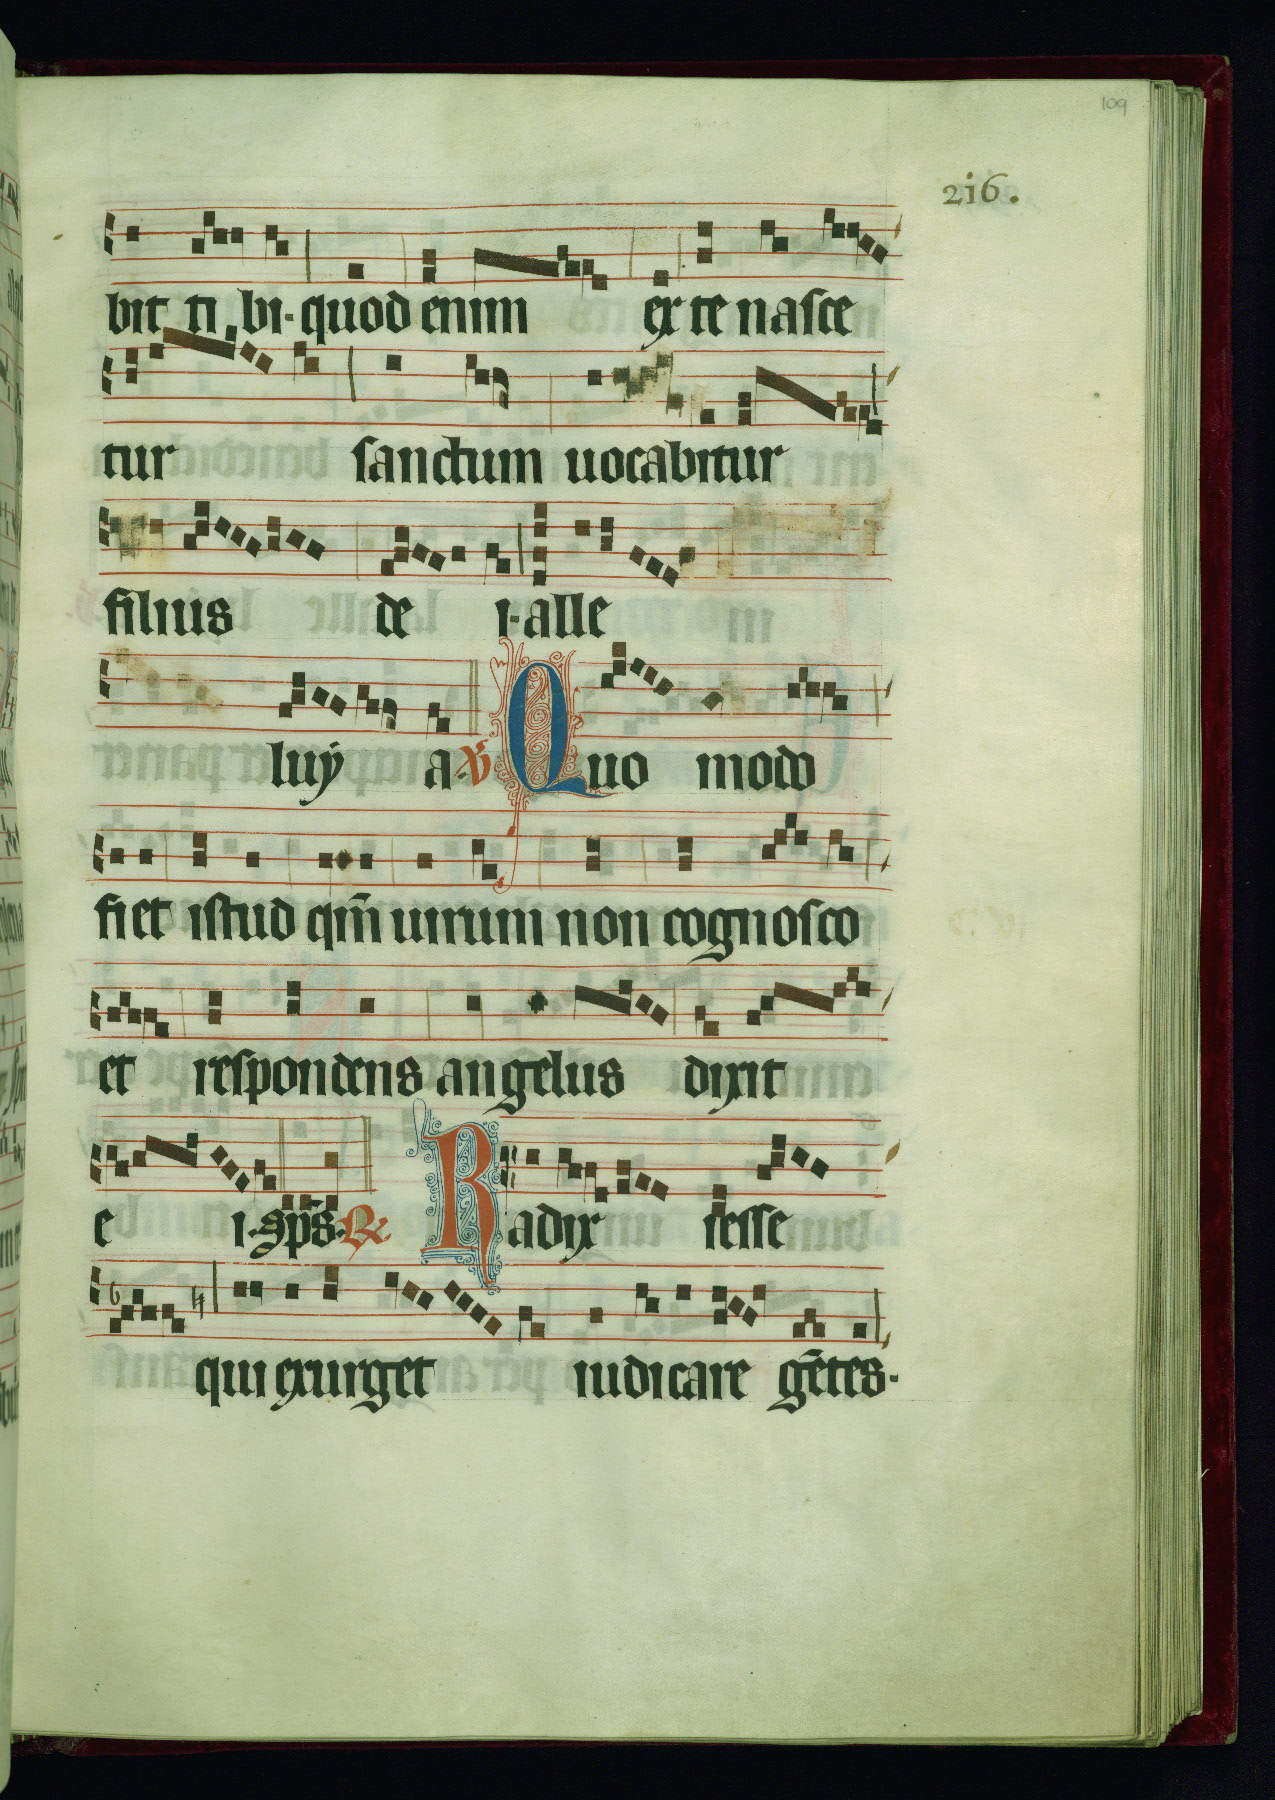 109
216.
bit ti bi · quod enim ex te nasce
tur sanctum uocabitur
filius de i · alle
luÿ a · ℣ Quo modo
fiet istud qm̄ uirum non cognosco
et respondens angelus dixit
e i · sp̄s · ℟ Radix iesse
qui exurget iudicare gētes ·